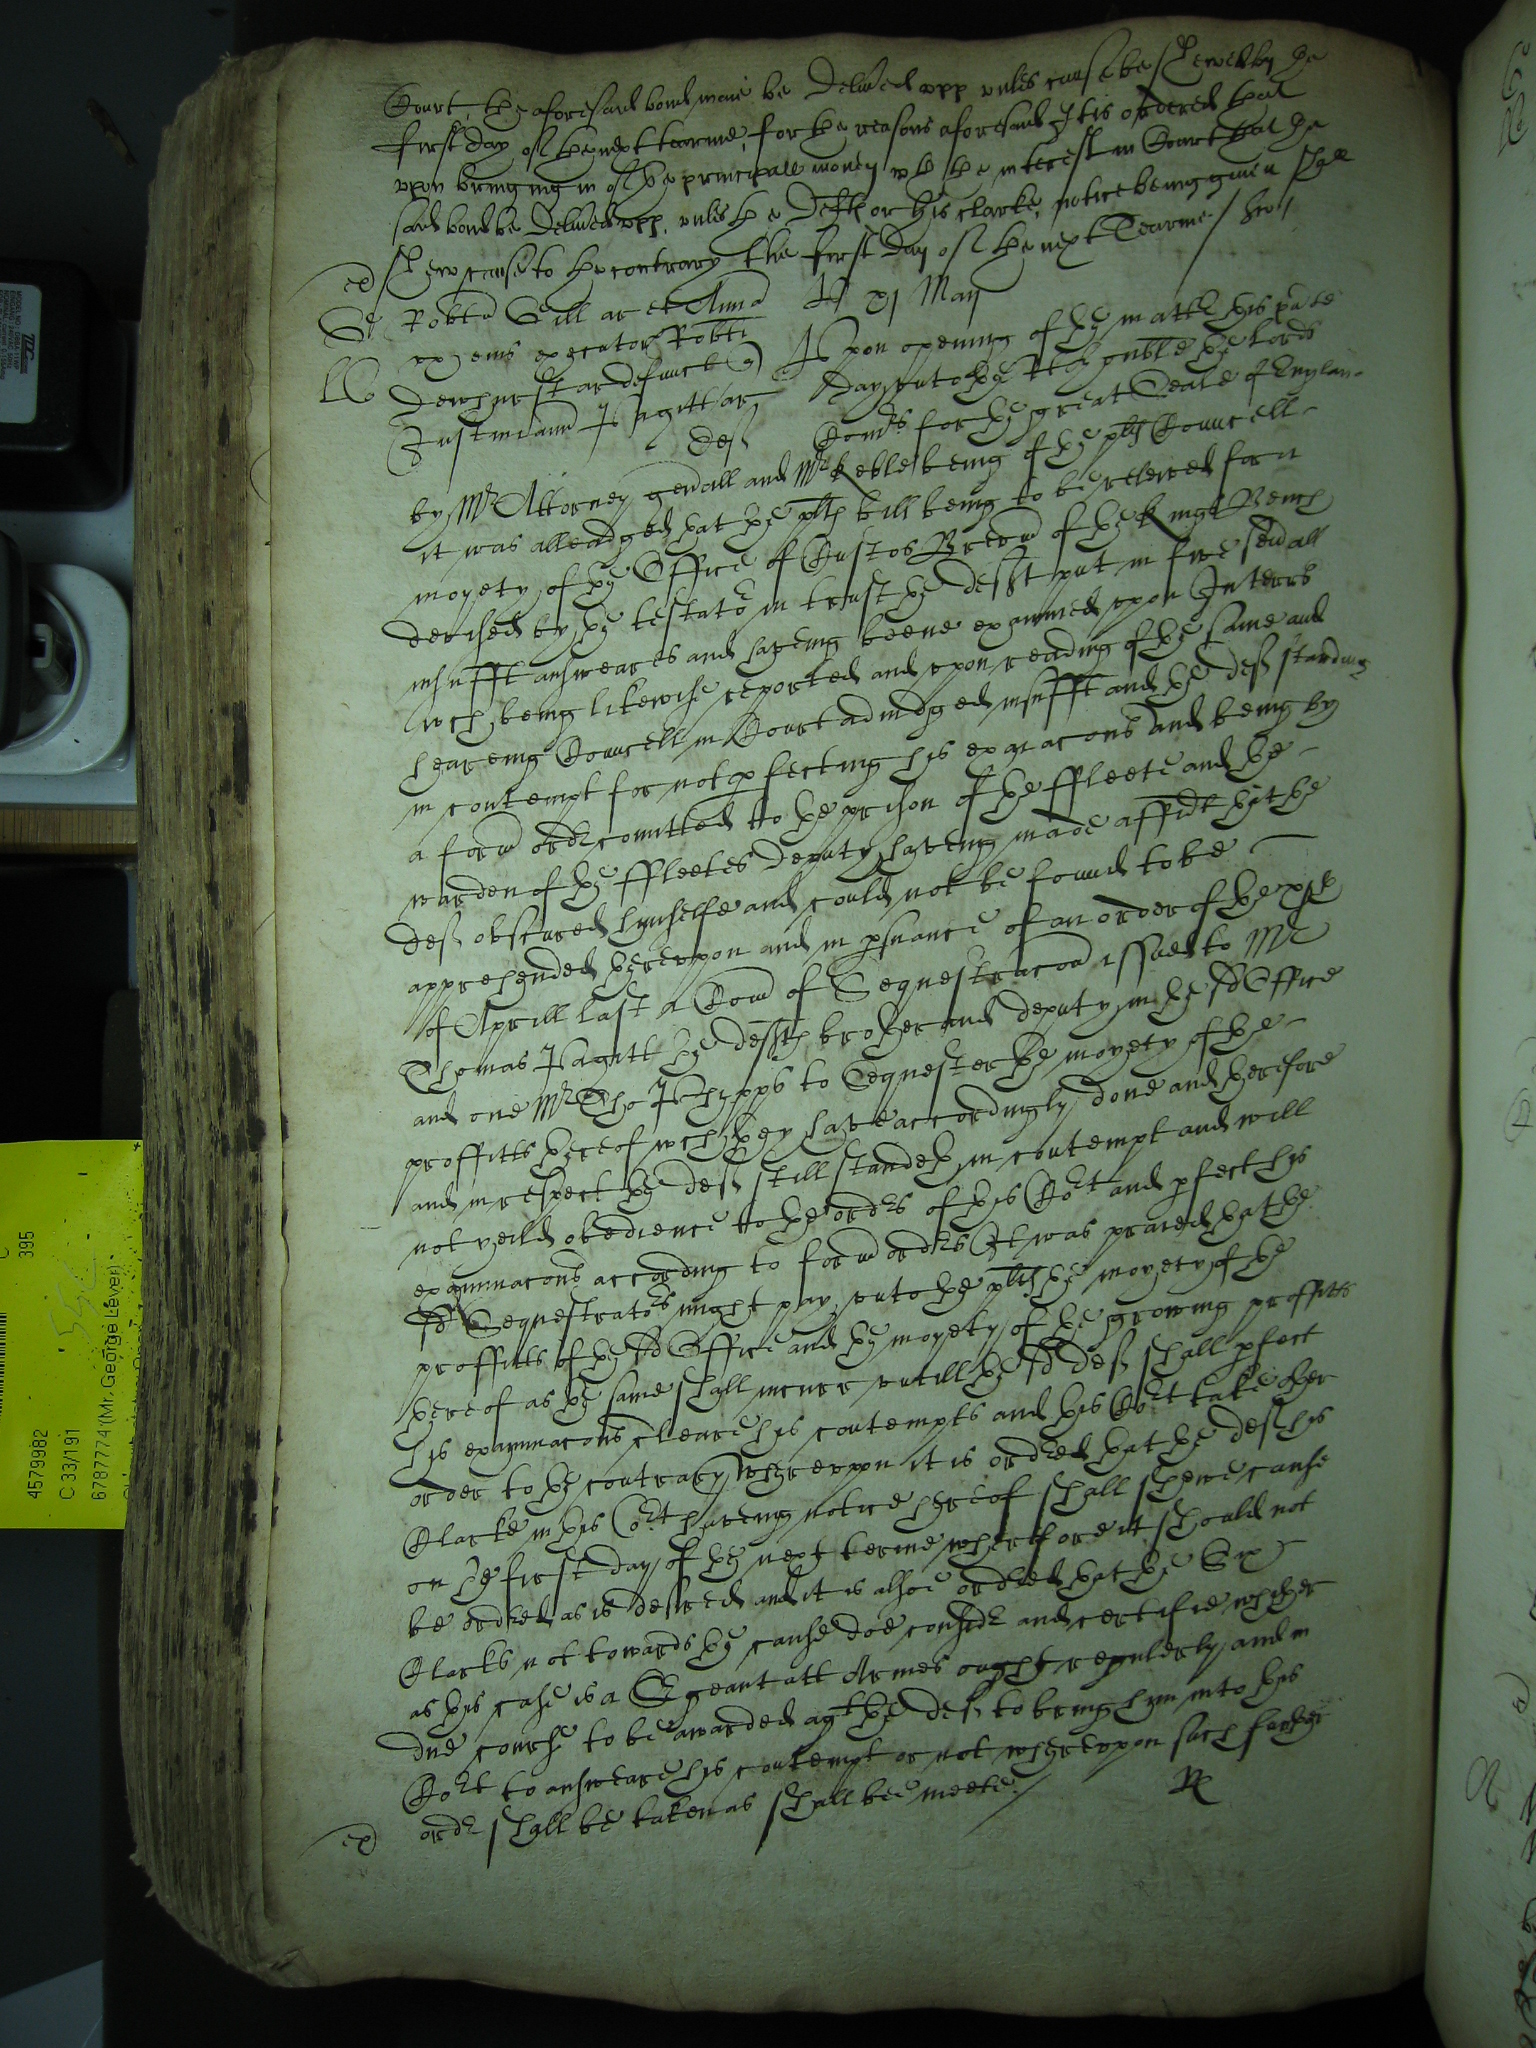 Court, the aforesaid bond maie be deliu'ed vpp vnles cause be shewed by the
first day of the next tearme, for the reasons aforesaid It is ordered that
vpon bringing in of the principall money wth the interest in Court that the
said bond be deliu'ed vpp, vnles the Deft or his clarke, notice being giuen shall
shew cause to the contrary the first day of the next Tearme./
ex
Robtu Gill ar et Anna
vx eius executor Robti
Dewhurst ar defunct
Justinianu Pagitt ar
def
xj May
Vpon opening of the mattr this pnte
day vnto the Rt honble the Lords
Comrs for the great Seale of England
by Mr Attorney gen'all and Mr Keble being of the plts Councell
it was alleadged that the plts bill being to be releived for a
moyety of the Office of Custos Breviu of the Kings Bench
devised by the testator in trust the deft put in fiue seu'all
insufft answeares and haveing beene examined vpon Interrs
wch being likewise reported and vpon reading of the same and
heareing Councell in Court adiudged insufft and the def standing
in contempt for not p'fecting his exam'acons and being by
a form' ordr comitted to the prison of the ffleete and the
warden of the ffleetes deputy haveing made affidt that the
def obscured hymselfe and could not be found to be
apprehended therevpon and in p'suance of an order of the
of Aprill last a Com' of Sequestracon issued to Mr
Thomas Pagitt the defts brother and deputy in the sd Office
and one Mr Tho Phypps to Sequester the moyety of the
proffitts thereof wch they have accordingly done and therefore
and in respect the def still standeth in contempt and will
not yeild obedience to the ordrs of this Cort and p'fect his
exam'inacons according to form' ordrs It was praied that the
sd Sequestrators might pay vnto the plts the moyety of the
proffitts of the sd Office and the moyety of the growing proffitts
thereof as the same shall incurr vntill the sd def shall p'fect
his exam'inacons cleare his contempts and this Cort take other
order to the contrary Wherevpon it is ordred that the def his
Clarke in this Cort haveing notice hereof shall shewe cause
on the first day of the next terme wherefore it should not
be ordred as is desired and it is alsoe ordred that the Six
Clarks not towards the cause doe considr and certifie whether
as this case is a Sergeant att Armes ought regulerly and in
due course to be awarded agt the def to bring him into this
Cort to answeare his contempt or not wherevpon such further
ordr shall be taken as shall bee meete./
ex
4579982
C 33/191
6787774 (Mr. George Lever)
395